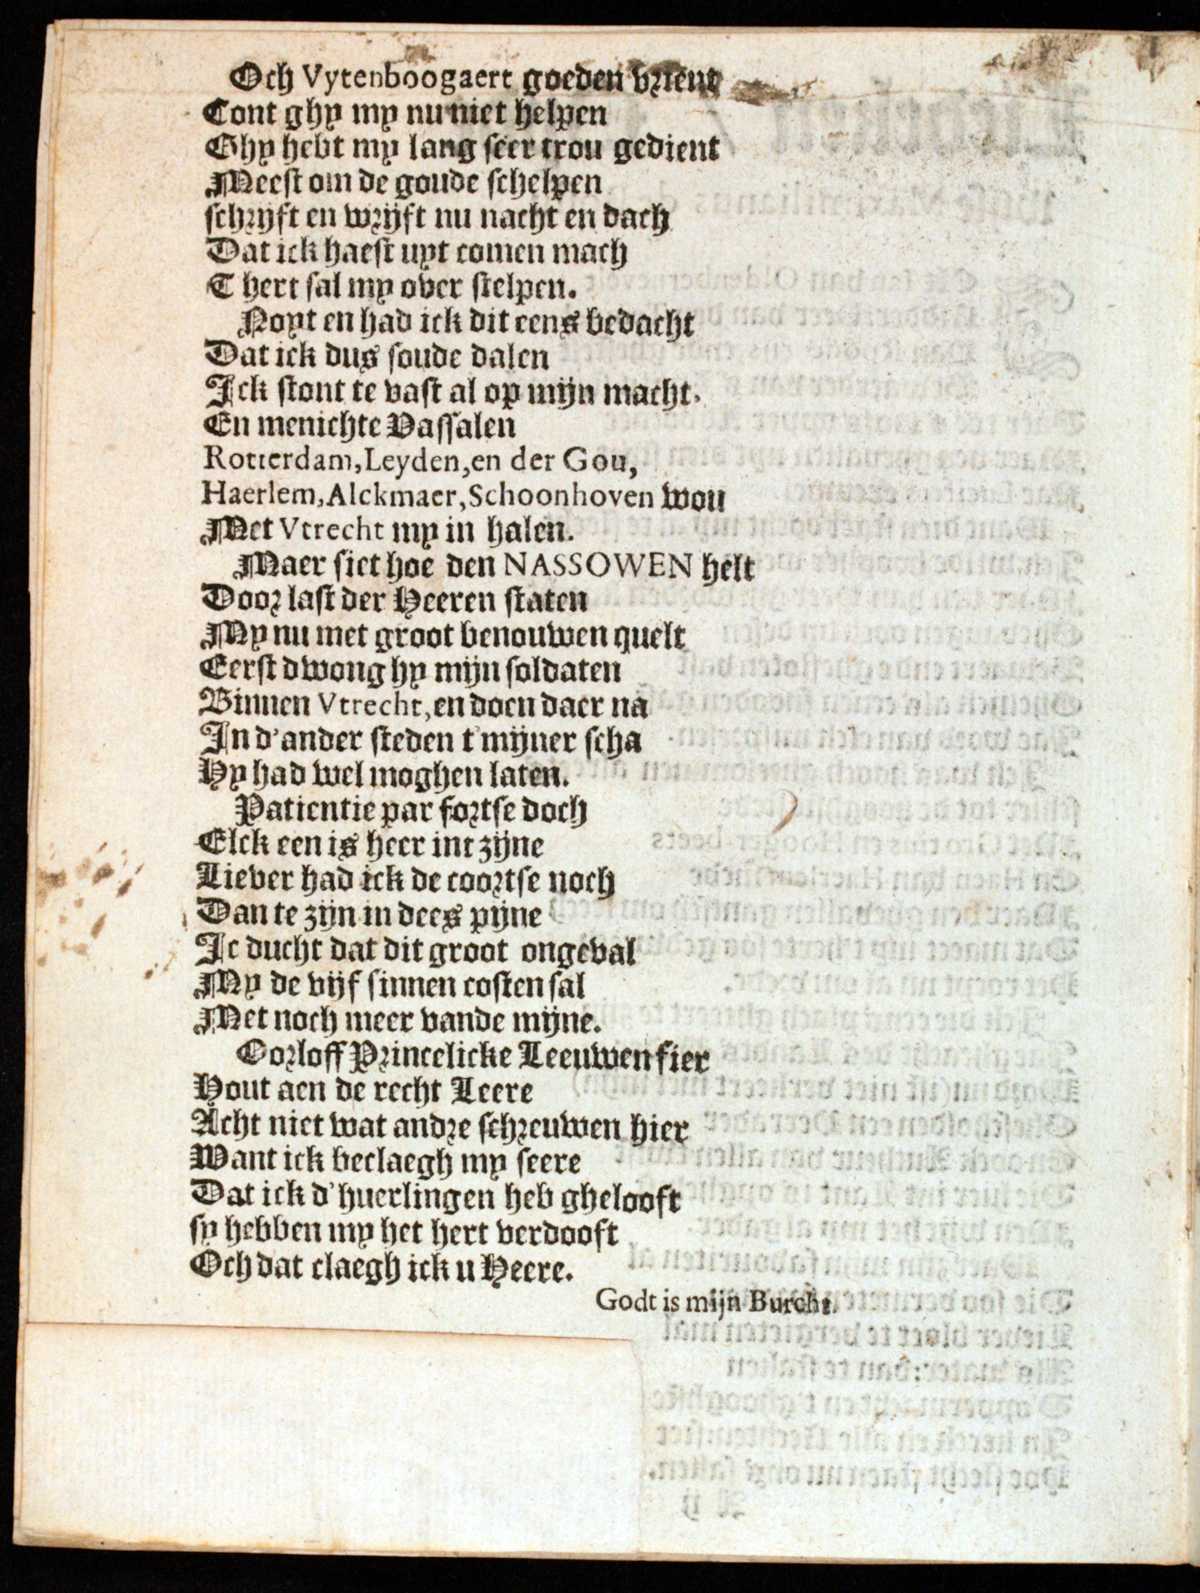 Och Vytenboogaert goeden vrient
Cont ghy my nu niet helpen
Ghy hebt my lang seer trou gedient
Meest om de goude schelpen
schrijft en wrijft nu nacht en dach
Dat ick haest uyt comen mach
T hert sal my over stelpen.
Noyt en had ick dit eens bedacht
Dat ick dus soude dalen
Ick stont te vast al op mijn macht.
En menichte Vassalen
Rotterdam, Leyden, en der Gou,
Haerlem, Alckmaer, Schoonhoven wou
Met Vtrecht my in halen.
Maer siet hoe den NASSOWEN helt
Door last der Heeren staten
My nu met groot benouwen quelt
Eerst dwong hy mijn soldaten
Binnen Vtrecht, en doen daer na
In d'ander steden t'mijner scha
Hy had wel moghen laten.
Patientie par fortse doch
Elck een is heer int zijne
Liever had ick de coortse noch
Dan te zijn in dees pijne
Ic ducht dat dit groot ongeval
My de vijf sinnen costen sal
Met noch meer vande mijne.
Oorloff Princelicke Leeuwen fier
Hout aen de recht Leere
Acht niet wat andre schreuwen hier
Want ick beclaegh my seere
Dat ick d'huerlingen heb ghelooft
sy hebben my het hert verdooft
Och dat claegh ick u Heere.
Godt is mijn Burcht.